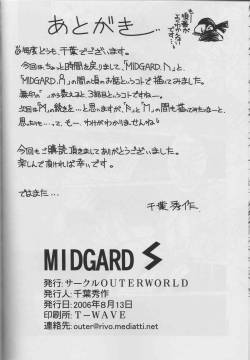 あとがき...
毎度どうも、千葉でございます。
今回はちょっと時間を戻しまして、「MIDGARD
「MIDGARD の間の頃のお話というコトで描いてみました。
から数えると3冊目というコトですねー。
次は「M」の続きを…と思いますが、
思ったりも…って、もー、わけがわかりませんね!
今回もご購読頂きましてありがとうございました。
楽しんで頂ければ幸いです。
ではまた…
千葉秀作.
MIDGARD S
発行:サークルOUTERWORLD
発行人:千葉秀作
発行日:2006年8月13日
印刷所:T-WAVE
連絡先:outer@rivo.mediatti.net